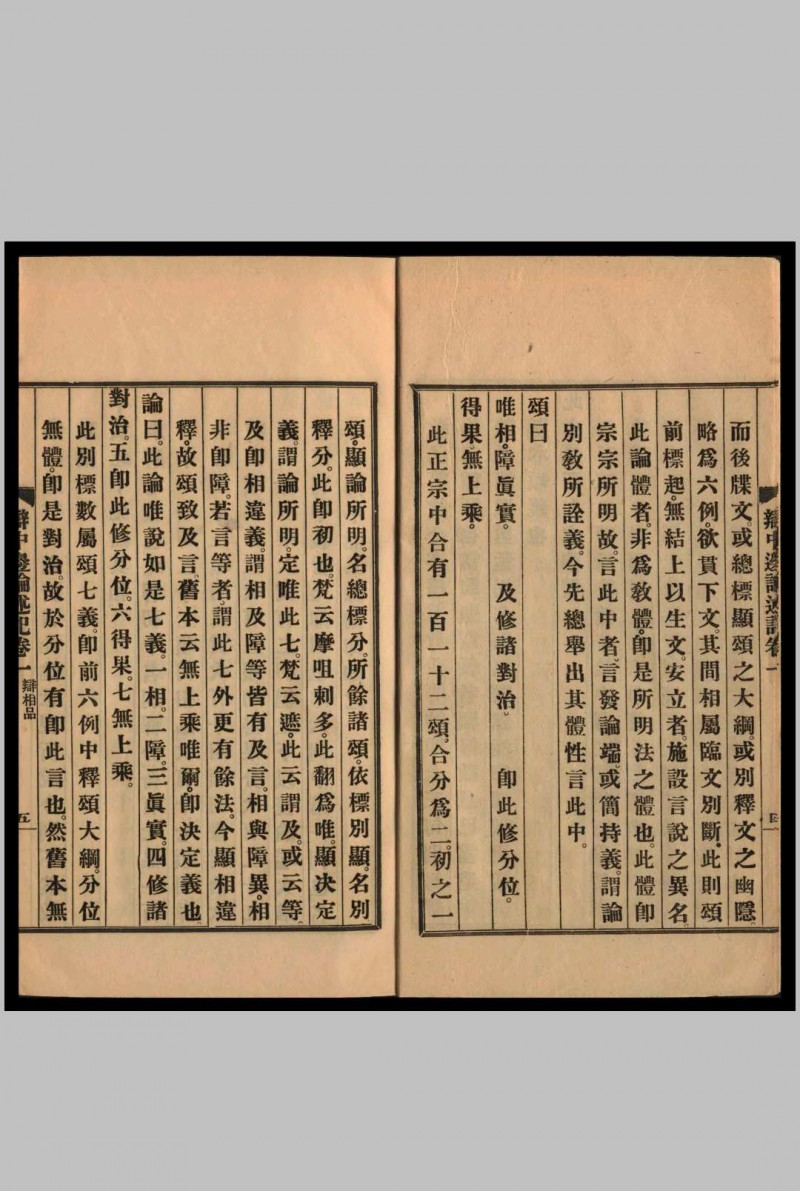 辯中邊論述記卷一
四
而後牒文。或總標顯頌之大綱。或別釋文之幽隱。
略爲六例。欲貫下文。其間相屬。臨文別斷。此則頌
前標起。無結上以生文。安立者。施設言說之異名。
此論體者。非爲敎體。卽是所明法之體也。此體卽
宗。宗所明故。言此中者。言發論端。或簡持義。謂論
別敎所詮義。今先總舉出其體性。言此中。
頌曰
唯相障眞實。 及修諸對治。 卽此修分位。
得果無上乘。
此正宗中合有一百一十二頌。合分爲二。初之一
頌。顯論所明。名總標分。所餘諸頌。依標別顯。名別
釋分。此卽初也。梵云摩咀剌多。此翻爲唯。顯決定
義。謂論所明。定唯此七。梵云遮。此云謂及。或云等
及卽相違義。謂相及障等皆有及言。相與障異。相
非卽障。若言等者。謂此七外更有餘法。今顯相違
釋。故頌致及言。舊本云無上乘唯爾。卽決定義也。
論曰。此論唯說如是七義。一相。二障。三眞實。四修諸
對治。五卽此修分位。六得果。七無上乘。
此別標數屬頌七義。卽前六例中釋頌大綱。分位
無體。卽是對治。故於分位有卽此言也。然舊本無
辯中邊論述記卷一 辯相品
五